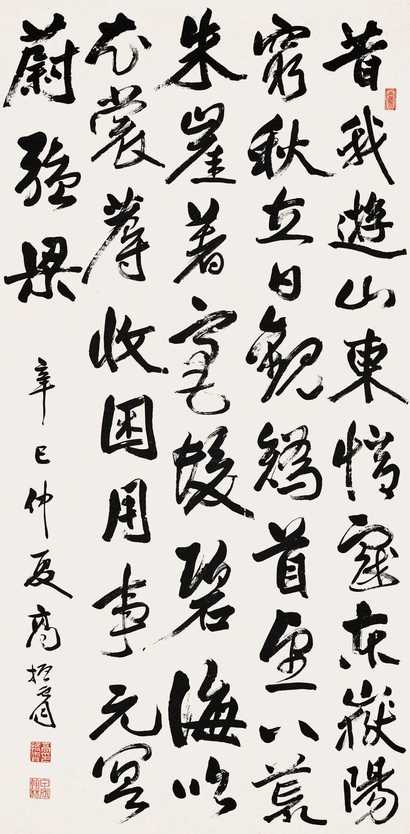 昔我遊山東憶戲東嶽陽
窮秋立日觀矯首望八荒
朱崖着毫髮碧海吹
衣裳蓐收困用事元冥
蔚强梁
辛巳仲夏高振霄